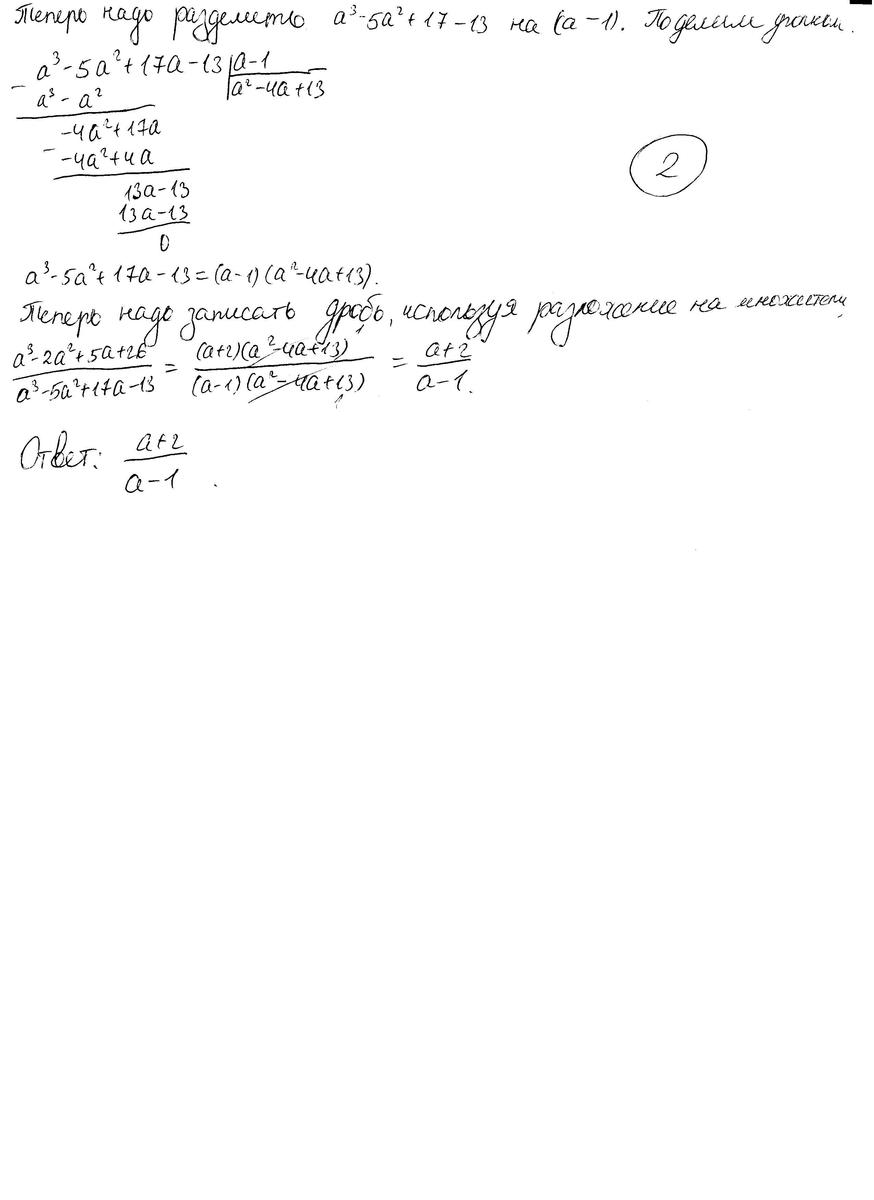 Теперь надо разделить a³-5a²+17-13 на (a-1). Поделим уголком.
a³-5a²+17a-13 | a-1
- a³-a² | a²-4a+13
-4a²+17a
- -4a²+4a
2
13a-13
13a-13
0
a³-5a²+17a-13=(a-1)(a²-4a+13).
Теперь надо записать дробь, используя разложение на множители
(a³-2a²+5a+26)/(a³-5a²+17a-13) = ((a+2)(a²-4a+13))/((a-1)(a²-4a+13)) = (a+2)/(a-1).
Ответ: (a+2)/(a-1).